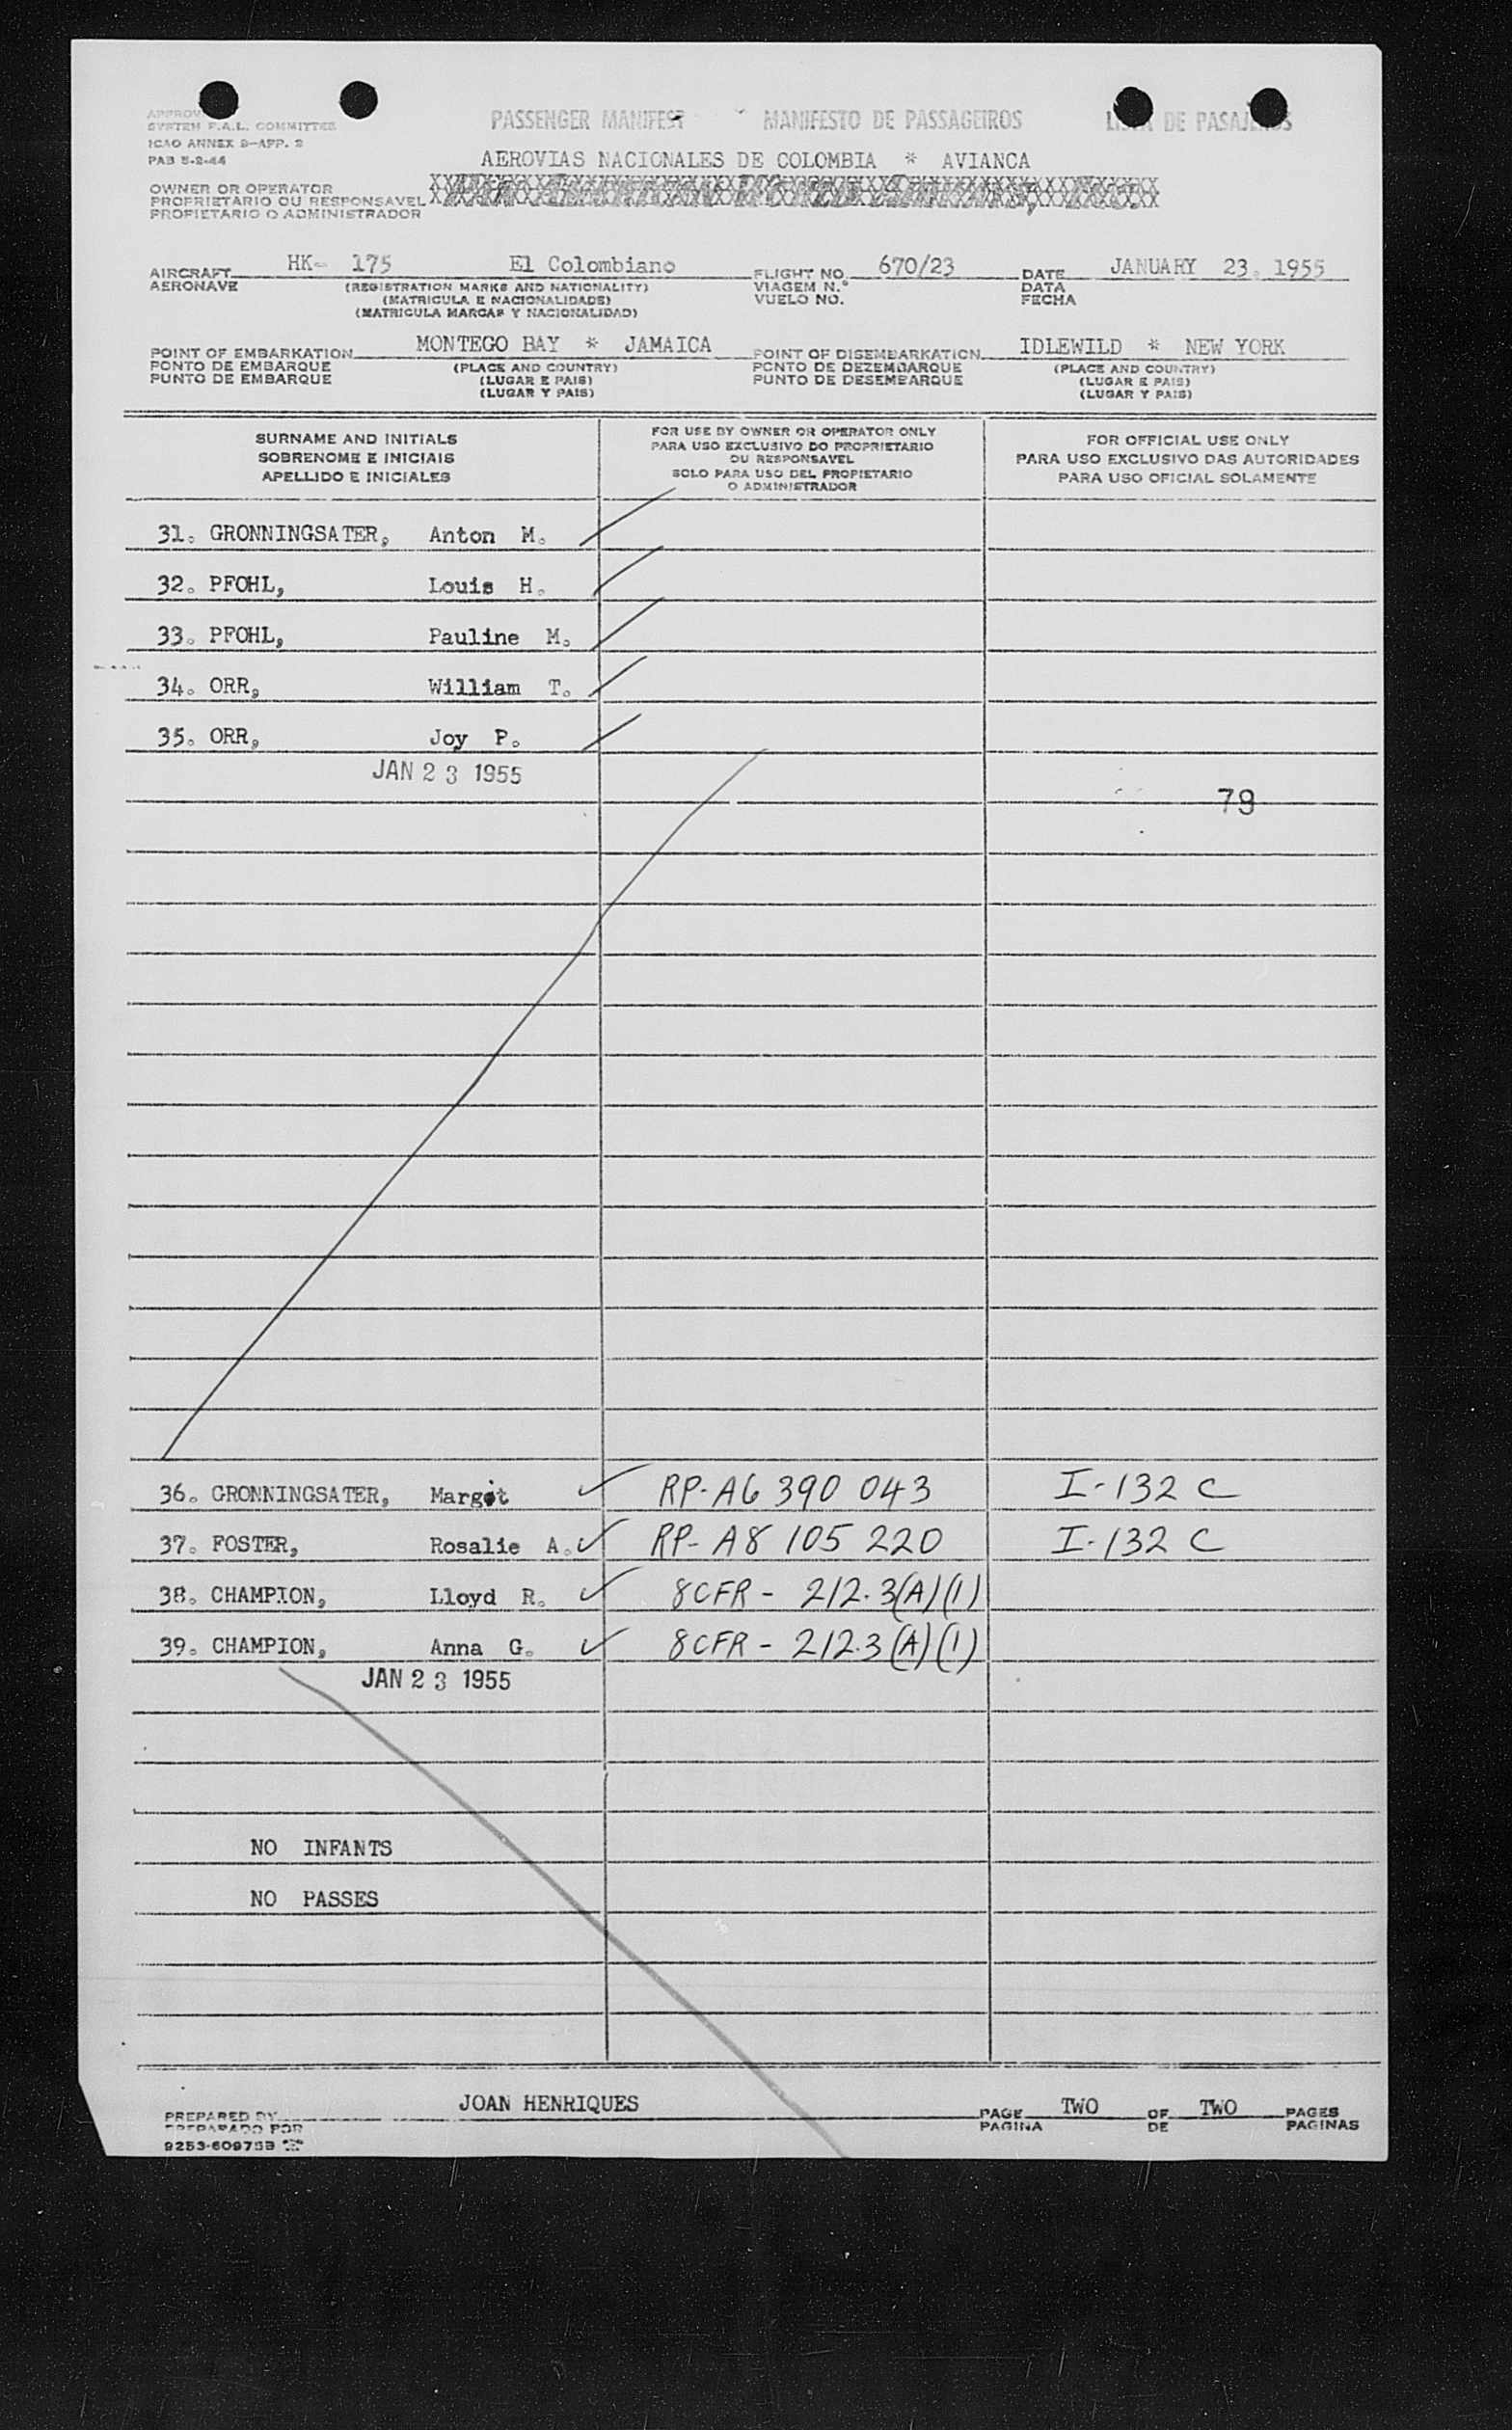 PASSENGER MANIFEST MANIFESTO DE PASSAGEIROS LISTA DE PASAJEROS
SYSTEM F.A.L. COMMITTEE
ICAO ANNEX 9-APP. 2
PAB 5-2-44
AEROVIAS NACIONALES DE COLOMBIA * AVIANCA
OWNER OR OPERATOR
PROPRIETARIO OU RESPONSAVEL
PROPIETARIO O ADMINISTRADOR
AIRCRAFT HK- 175 El Colombiano FLIGHT NO. 670/23 DATE JANUARY 23. 1955
AERONAVE (REGISTRATION MARKS AND NATIONALITY) VIAGEM N.° DATA
(MATRICULA E NACIONALIDADE) VUELO NO. FECHA
(MATRICULA MARCAS Y NACIONALIDAD)
POINT OF EMBARKATION MONTEGO BAY * JAMAICA POINT OF DISEMBARKATION IDLEWILD * NEW YORK
PONTO DE EMBARQUE (PLACE AND COUNTRY) PONTO DE DEZEMBARQUE (PLACE AND COUNTRY)
PUNTO DE EMBARQUE (LUGAR E PAIS) PUNTO DE DESEMBARQUE (LUGAR E PAIS)
(LUGAR Y PAIS) (LUGAR Y PAIS)
SURNAME AND INITIALS
SOBRENOME E INICIAIS
APELLIDO E INICIALES
FOR USE BY OWNER OR OPERATOR ONLY
PARA USO EXCLUSIVO DO PROPRIETARIO
OU RESPONSAVEL
SOLO PARA USO DEL PROPIETARIO
O ADMINISTRADOR
FOR OFFICIAL USE ONLY
PARA USO EXCLUSIVO DAS AUTORIDADES
PARA USO OFICIAL SOLAMENTE
31. GRONNINGSATER, Anton M.
32. PFOHL, Louis H.
33. PFOHL, Pauline M.
34. ORR, William T.
35. ORR, Joy P.
JAN 23 1955
79
36. GRONNINGSATER, Margit RP-A6 390 043 I-132 C
37. FOSTER, Rosalie A. RP-A8 105 220 I-132 C
38. CHAMPION, Lloyd R. 8CFR - 212.3(A)(1)
39. CHAMPION, Anna G. 8CFR - 212.3(A)(1)
JAN 23 1955
NO INFANTS
NO PASSES
PREPARED BY JOAN HENRIQUES PAGE TWO OF TWO PAGES
PREPARADO POR PAGINA DE PAGINAS
9253-60975B